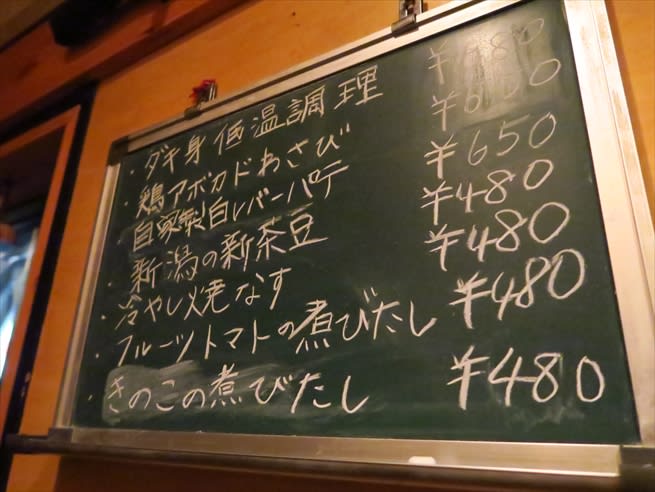 ・ダキ身低温調理 ¥480
・鶏アボカドわさび ¥650
自家製白レバーパテ ¥650
・新潟の新茶豆 ¥480
・冷やし焼なす ¥480
・フルーツトマトの煮びたし ¥480
・きのこの煮びたし ¥480